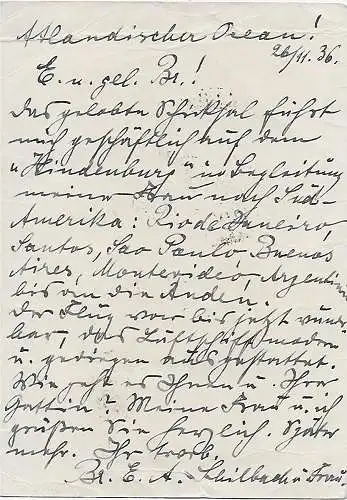 Atlandischer Ocean!
26/11. 36.
E. u. gel. Br.!
Das gelobte Schicksal führt
mich geschäftlich auf dem
"Hindenburg" in Begleitung
meiner Frau nach Süd-
Amerika: Rio de Janeiro,
Santos, Sao Paulo - Buenos
Aires, Montevideo, Argentinien
bis an die Anden.
Der Flug war bis jetzt wunder-
bar, das Luftschiff modern
u. gediegen ausgestattet.
Wie geht es Ihnen u. Ihrer
Gattin? Meine Frau u. ich
grüßen Sie herzlich. Später
mehr. Ihr treuverb.
Br. E. A. Schilbach u. Frau.